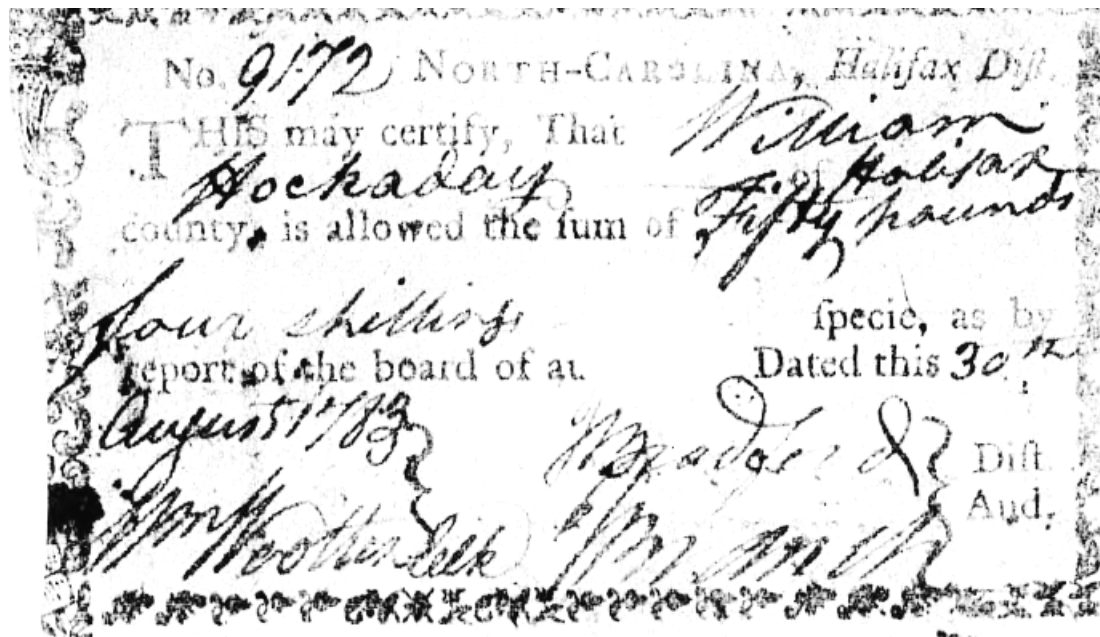 No. 9172 NORTH-CAROLINA, Halifax Dist.
THIS may certify, That William
Hockaday of Halifax
county, is allowed the ſum of Fifty pounds
four shillings ſpecie, as by
report of the board of au Dated this 30th
August 1783
J Bradford Diſt.
Wm Wootten Clk Aud.